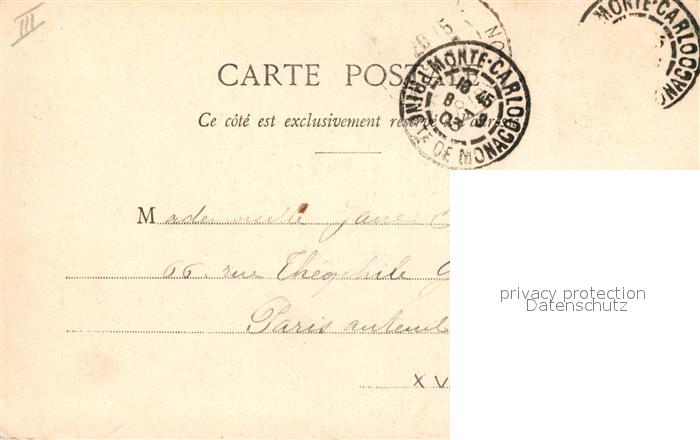 III
CARTE POST
Ce côté est exclusivement réservé à l'adresse
MONTE-CARLO
PRINCIPTÉ DE MONACO
10 45
MONTE-CARLO
MONACO
Mademoiselle Jane
66. rue Théophile G
Paris auteuil
XV
privacy protection
Datenschutz